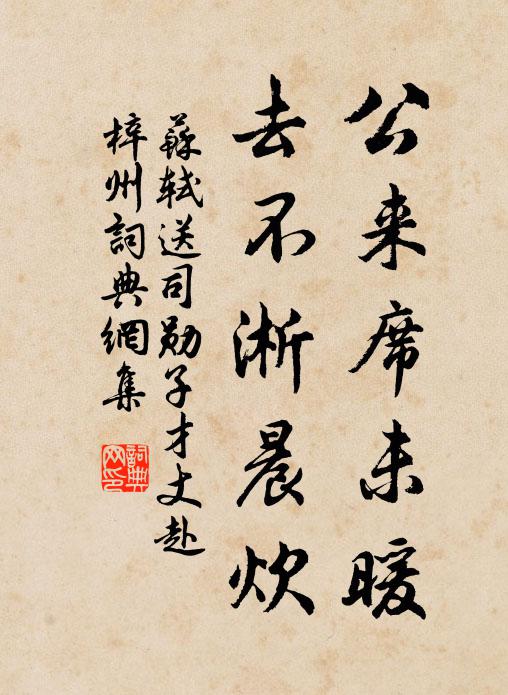 公来席未暖
去不淅晨炊
蘇軾送司勋子才丈赴
梓州詞典網集
詞典网印